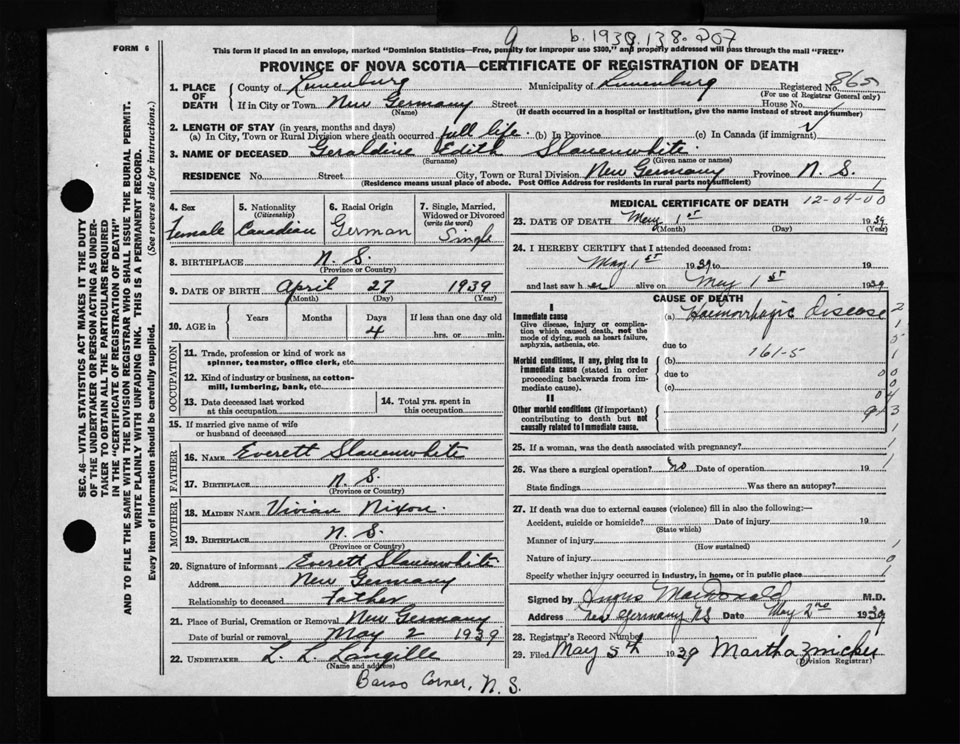 b. 1939. 138. 207
9
FORM 6
This form if placed in an envelope, marked "Dominion Statistics—Free, penalty for improper use $300," and properly addressed will pass through the mail "FREE"
PROVINCE OF NOVA SCOTIA—CERTIFICATE OF REGISTRATION OF DEATH
1. PLACE OF DEATH County of Lunenburg Municipality of Lunenburg Registered No. 865
(For use of Registrar General only)
If in City or Town New Germany Street House No.
(Name) (If death occurred in a hospital or institution, give the name instead of street and number)
2. LENGTH OF STAY (in years, months and days)
(a) In City, Town or Rural Division where death occurred full life. (b) In Province (c) In Canada (if immigrant)
3. NAME OF DECEASED Geraldine Edith Slauenwhite.
(Surname) (Given name or names)
RESIDENCE No. Street City, Town or Rural Division New Germany Province N. S.
(Residence means usual place of abode. Post Office Address for residents in rural parts not sufficient)
SEC. 46—VITAL STATISTICS ACT MAKES IT THE DUTY
OF THE UNDERTAKER OR PERSON ACTING AS UNDER-
TAKER TO OBTAIN ALL THE PARTICULARS REQUIRED
IN THE "CERTIFICATE OF REGISTRATION OF DEATH"
AND TO FILE THE SAME WITH THE DIVISION REGISTRAR WHO SHALL ISSUE THE BURIAL PERMIT.
WRITE PLAINLY WITH UNFADING INK. THIS IS A PERMANENT RECORD.
Every item of information should be carefully supplied. (See reverse side for instructions.)
4. Sex Female
5. Nationality (Citizenship) Canadian
6. Racial Origin German
7. Single, Married, Widowed or Divorced (write the word) Single
8. BIRTHPLACE N. S.
(Province or Country)
9. DATE OF BIRTH April 27 1939
(Month) (Day) (Year)
10. AGE in Years Months Days 4 If less than one day old hrs. or min.
OCCUPATION
11. Trade, profession or kind of work as spinner, teamster, office clerk, etc.
12. Kind of industry or business, as cotton-mill, lumbering, bank, etc.
13. Date deceased last worked at this occupation
14. Total yrs. spent in this occupation
15. If married give name of wife or husband of deceased
FATHER
16. Name Everett Slauenwhite
17. Birthplace N. S.
(Province or Country)
MOTHER
18. Maiden Name Vivian Nixon.
19. Birthplace N. S.
(Province or Country)
20. Signature of informant Everett Slauenwhite
Address New Germany
Relationship to deceased Father
21. Place of Burial, Cremation or Removal New Germany
Date of burial or removal May 2 1939
22. Undertaker L. L. Langille
(Name and address)
Barss Corner, N. S.
MEDICAL CERTIFICATE OF DEATH 12-04-00
23. DATE OF DEATH May 1st 1939
(Month) (Day) (Year)
24. I HEREBY CERTIFY that I attended deceased from:
May 1st 1939 to 19
and last saw her alive on May 1st 1939
CAUSE OF DEATH
I
Immediate cause
Give disease, injury or complication which caused death, not the mode of dying, such as heart failure, asphyxia, asthenia, etc.
(a) Haemorrhagic disease
due to
161-5
Morbid conditions, if any, giving rise to immediate cause (stated in order proceeding backwards from immediate cause).
(b)
due to
(c)
II
Other morbid conditions (if important) contributing to death but not causally related to immediate cause.
25. If a woman, was the death associated with pregnancy?
26. Was there a surgical operation? No Date of operation 19
State findings Was there an autopsy?
27. If death was due to external causes (violence) fill in also the following:—
Accident, suicide or homicide? Date of injury 19
(State which)
Manner of injury
(How sustained)
Nature of injury
Specify whether injury occurred in industry, in home, or in public place
Signed by Angus MacDonald M.D.
Address New Germany NS Date May 2nd 1939
28. Registrar's Record Number
29. Filed May 5th 1939 Martha Zwicker
(Division Registrar)